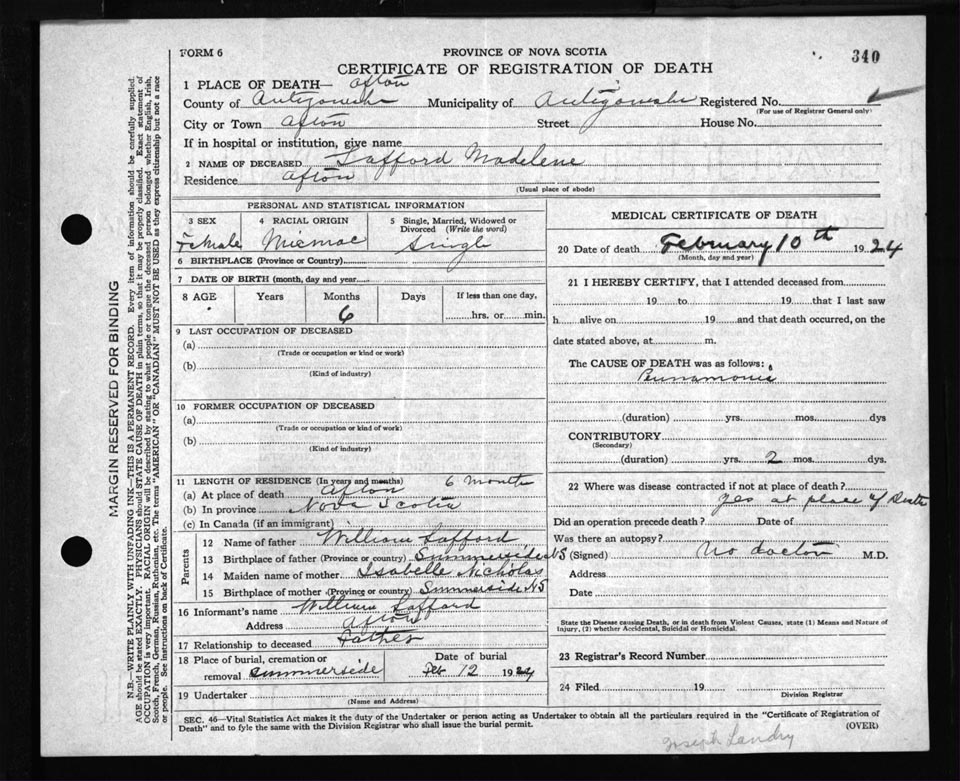 FORM 6
PROVINCE OF NOVA SCOTIA
340
CERTIFICATE OF REGISTRATION OF DEATH
1 PLACE OF DEATH— Afton
County of Antigonish Municipality of Antigonish Registered No.
(For use of Registrar General only)
City or Town Afton Street House No.
If in hospital or institution, give name
2 NAME OF DECEASED Lafford Madelene
Residence Afton
(Usual place of abode)
PERSONAL AND STATISTICAL INFORMATION
3 SEX 4 RACIAL ORIGIN 5 Single, Married, Widowed or Divorced (Write the word)
Female Micmac Single
6 BIRTHPLACE (Province or Country)
7 DATE OF BIRTH (month, day and year
8 AGE Years Months Days If less than one day,
6 hrs. or min.
9 LAST OCCUPATION OF DECEASED
(a)
(Trade or occupation or kind or work)
(b)
(Kind of industry)
10 FORMER OCCUPATION OF DECEASED
(a)
(Trade or occupation or kind of work)
(b)
(Kind of industry)
11 LENGTH OF RESIDENCE (In years and months) 6 Months
(a) At place of death Afton
(b) In province Nova Scotia
(c) In Canada (if an immigrant)
Parents
12 Name of father William Lafford
13 Birthplace of father (Province or country) Summerside NS
14 Maiden name of mother Isabelle Nicholas
15 Birthplace of mother (Province or country) Summerside NS
16 Informant's name William Lafford
Address Afton
17 Relationship to deceased Father
18 Place of burial, cremation or removal Summerside
Date of burial
Feb 12 1924
19 Undertaker
(Name and Address)
MEDICAL CERTIFICATE OF DEATH
20 Date of death February 10th 1924
(Month, day and year)
21 I HEREBY CERTIFY, that I attended deceased from
19 to 19 that I last saw
h alive on 19 and that death occurred, on the
date stated above, at m.
The CAUSE OF DEATH was as follows:
Punamonia
(duration) yrs. mos. dys
CONTRIBUTORY
(Secondary)
(duration) yrs. 2 mos. dys.
22 Where was disease contracted if not at place of death?
yes at place of Death
Did an operation precede death? Date of
Was there an autopsy?
(Signed) No doctor M.D.
Address
Date
State the Disease causing Death, or in death from Violent Causes, state (1) Means and Nature of
Injury, (2) whether Accidental, Suicidal or Homicidal.
23 Registrar's Record Number
24 Filed 19
Division Registrar
SEC. 46—Vital Statistics Act makes it the duty of the Undertaker or person acting as Undertaker to obtain all the particulars required in the "Certificate of Registration of
Death" and to fyle the same with the Division Registrar who shall issue the burial permit. (OVER)
Joseph Landry
MARGIN RESERVED FOR BINDING
N.B.—WRITE PLAINLY WITH UNFADING INK—THIS IS A PERMANENT RECORD. Every item of information should be carefully supplied.
AGE should be stated EXACTLY. PHYSICIANS should STATE CAUSE OF DEATH in plain terms, so that it may be properly classified. Exact statement of
OCCUPATION is very important. RACIAL ORIGIN will be described by stating to what people or tongue the deceased person belonged whether English, Irish,
Scotch, French, German, Russian, Ruthenian, etc. The terms "AMERICAN" OR "CANADIAN" MUST NOT BE USED as they express citizenship but not a race
or people. See instructions on back of Certificate.